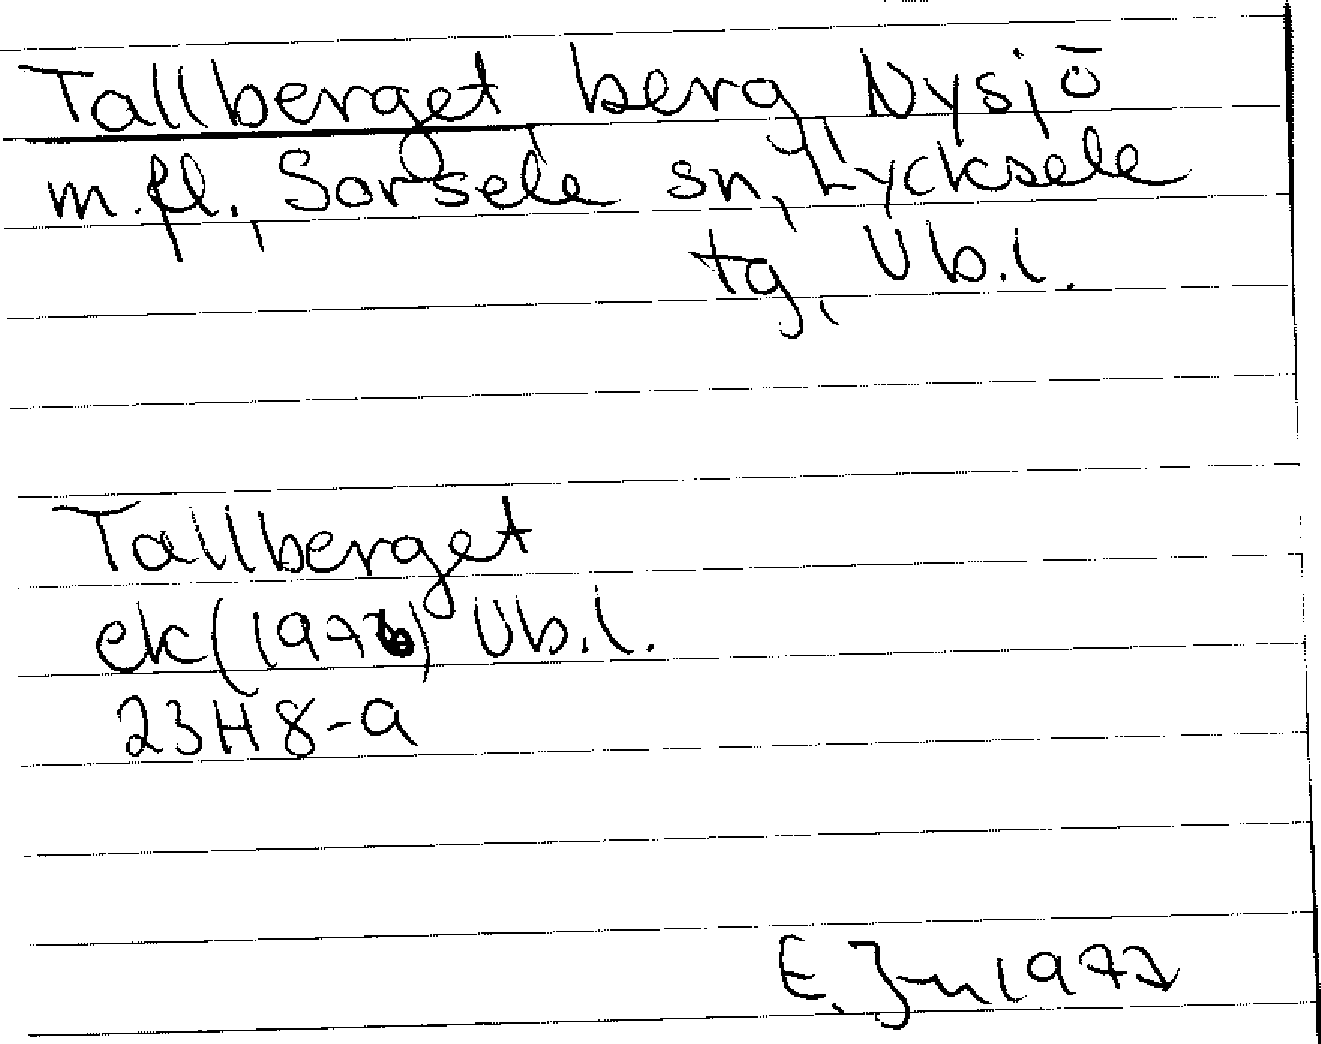 Tallberget berg Nysjö
m.fl., Sorsele sn, Lycksele
tg, Vb.l.
Tallberget
ek(1970) Vb.l.
23H 8-a
E. 1972